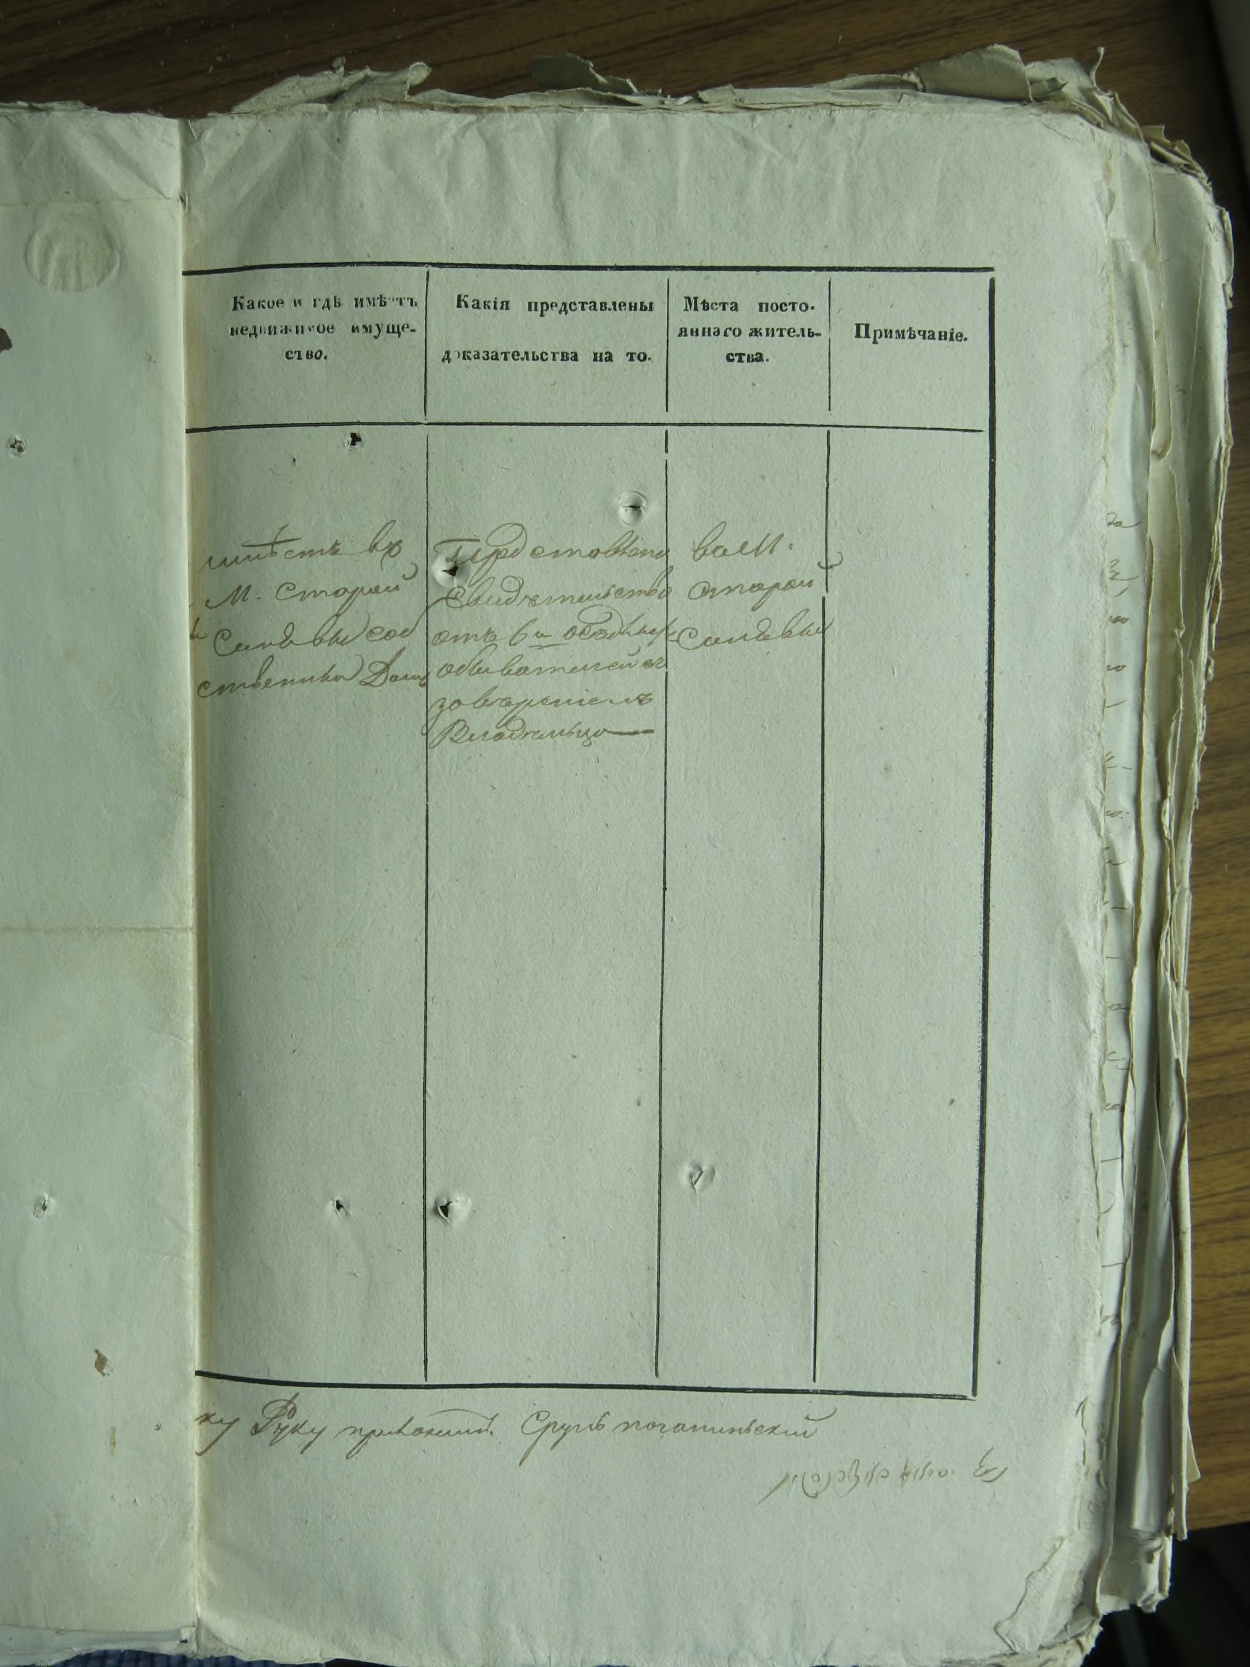 Какое и гдѣ имѣетъ
недвижимое имуще-
ство.
Какія представлены
доказательства на то.
Мѣста посто-
яннаго житель-
ства.
Примѣчаніе.
имѣетъ въ
М. Старой
Синявы соб
ственный Домъ
Представлено
Свидѣтельство
отъ 6и
обывателей съ
завѣреніемъ
Владѣльца
в М.
Старой
Синявы
ку Руку приложилъ Сруль